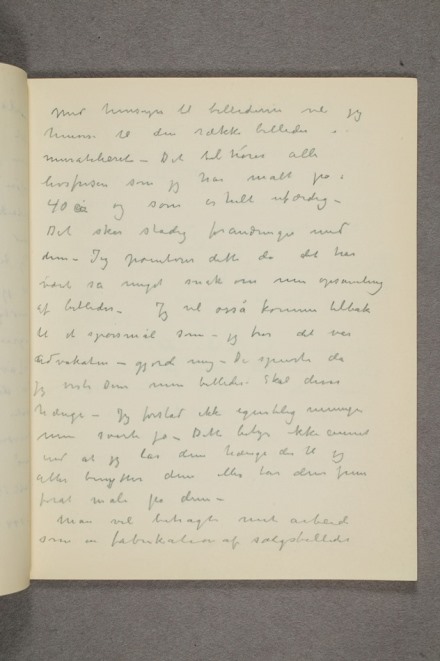 med hensyn til billederne vil jeg
henvise til den række billeder i
muratelieret – Det tilhører alle
livsfrisen som jeg har malt på i
40 år og som er helt uferdig –
Det sker stadig forandringer med
dem – Jeg påminer dette da det har
vært så meget snak om min opsamling
af billeder – Jeg vil også komme tilbak
til et spørsmål som – jeg tror det var
advokaten – gjord mig – De spurte da
jeg viste Dem mine billeder. Skal disse
hænge – Jeg forstod ikke egentlig meningen
men svarte ja – Dette betyr ikke annet
end at jeg lar dem hænge der til jeg
atter benytter dem eller tar dem frem
for at male på dem –
Man vil betragte mit arbeid
som en fabrikation af salgsbilleder